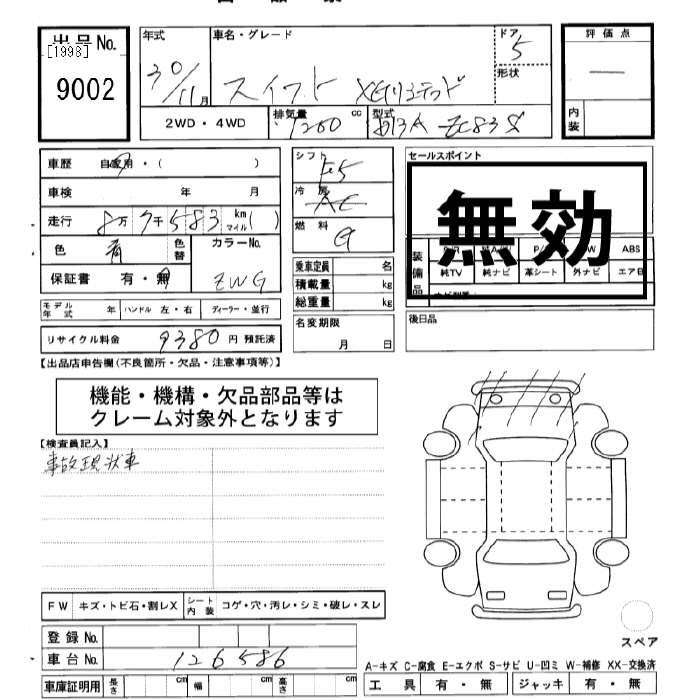 出品No.
[1998]
9002
年式
30/11月
車名・グレード
スイフト XGリミテッド
ドア
5
形状
評価点
—
内装
2WD・4WD
排気量
1200 cc
型式
ZC83S
車歴 自家用・( )
車検 年 月
走行 8万7千583 km マイル( )
色 青 色替 カラーNo.
保証書 有・無 ZWG
モデル年式 年 ハンドル 左・右 ディーラー・並行
リサイクル料金 9380 円 預託済
シフト
F5
冷房
AC
燃料
G
乗車定員 名
積載量 kg
総重量 kg
名変期限
月 日
セールスポイント
無効
装備品
ABS
純TV 純ナビ 革シート 外ナビ エアB
後日品
【出品店申告欄(不良箇所・欠品・注意事項等)】
機能・機構・欠品部品等は
クレーム対象外となります
【検査員記入】
事故現状車
FW キズ・トビ石・割レX シート内装 コゲ・穴・汚レ・シミ・破レ・スレ
登録No.
車台No. 126586
車庫証明用 長さ cm 幅 cm 高さ cm
スペア
A-キズ C-腐食 E-エクボ S-サビ U-凹ミ W-補修 XX-交換済
工具 有・無 ジャッキ 有・無